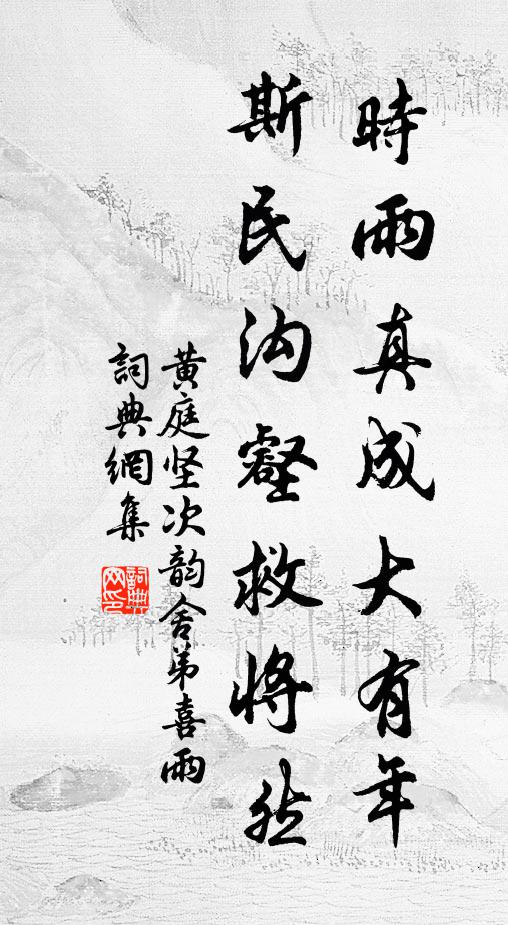 時雨真成大有年
斯民沟壑救将然
黄庭坚次韵舍弟喜雨
詞典網集
詞典网印